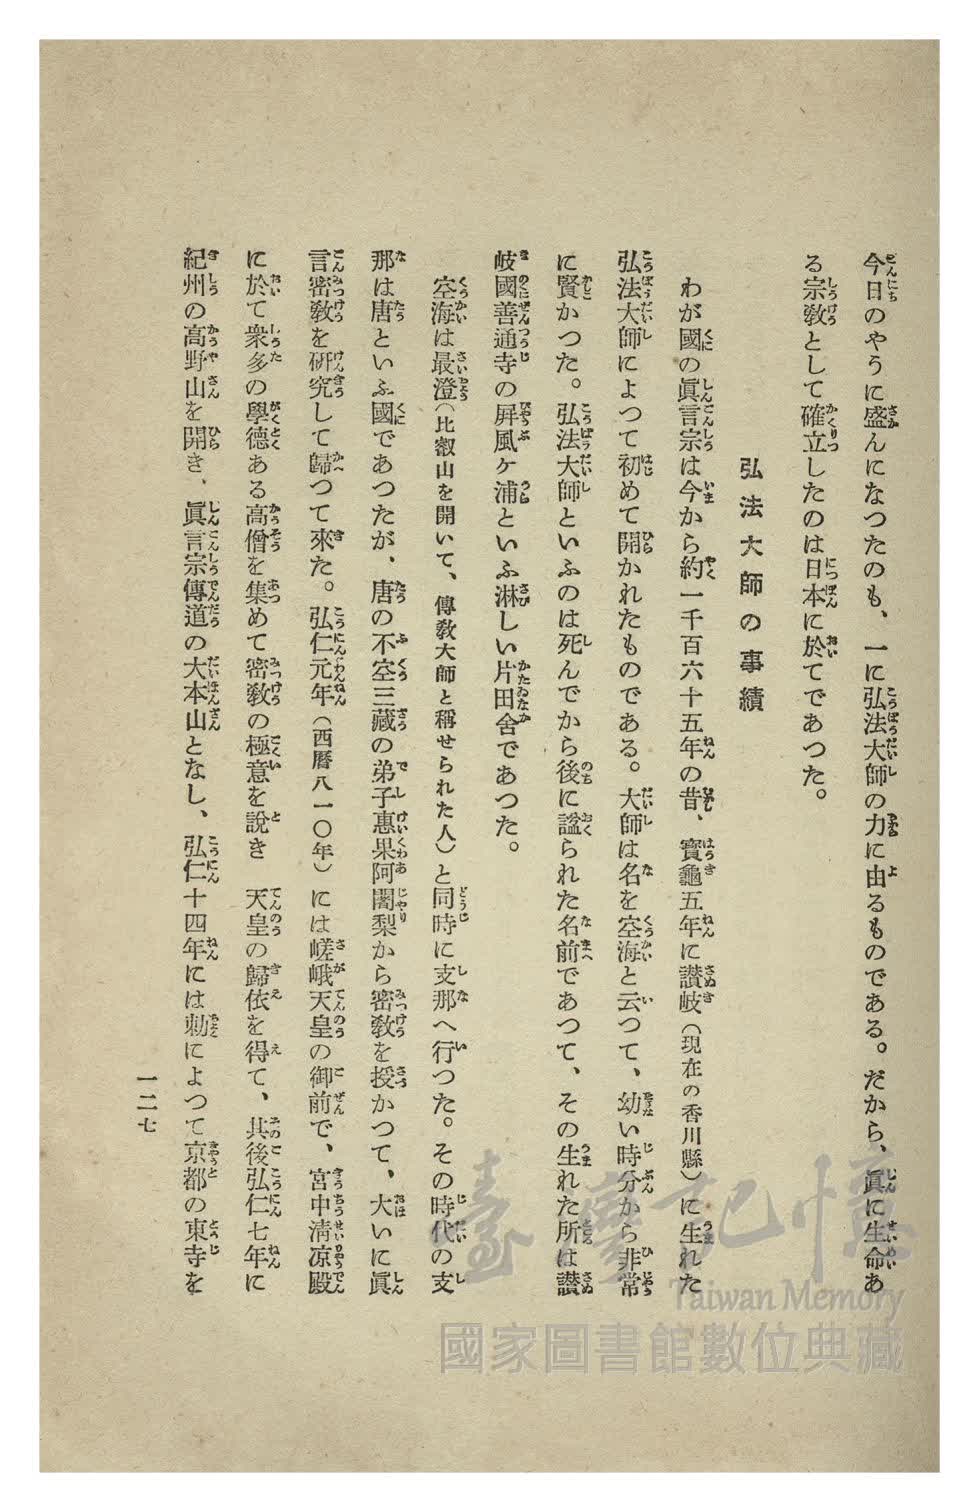 今日のやうに盛んになつたのも、一に弘法大師の力に由るものである。だから、眞に生命あ
る宗教として確立したのは日本に於てであつた。
弘法大師の事績
わが國の眞言宗は今から約一千百六十五年の昔、寶龜五年に讃岐（現在の香川縣）に生れた
弘法大師によつて初めて開かれたものである。大師は名を空海と云つて、幼い時分から非常
に賢かつた。弘法大師といふのは死んでから後に諡られた名前であつて、その生れた所は讃
岐國善通寺の屏風ケ浦といふ淋しい片田舍であつた。
空海は最澄（比叡山を開いて、傳教大師と稱せられた人）と同時に支那へ行つた。その時代の支
那は唐といふ國であつたが、唐の不空三藏の弟子惠果阿闍梨から密教を授かつて、大いに眞
言密教を研究して歸つて來た。弘仁元年（西曆八一〇年）には嵯峨天皇の御前で、宮中淸凉殿
に於て衆多の學德ある高僧を集めて密教の極意を說き　天皇の歸依を得て、其後弘仁七年に
紀州の高野山を開き、眞言宗傳道の大本山となし、弘仁十四年には勅によつて京都の東寺を
一二七
臺灣記憶
Taiwan Memory
國家圖書館數位典藏